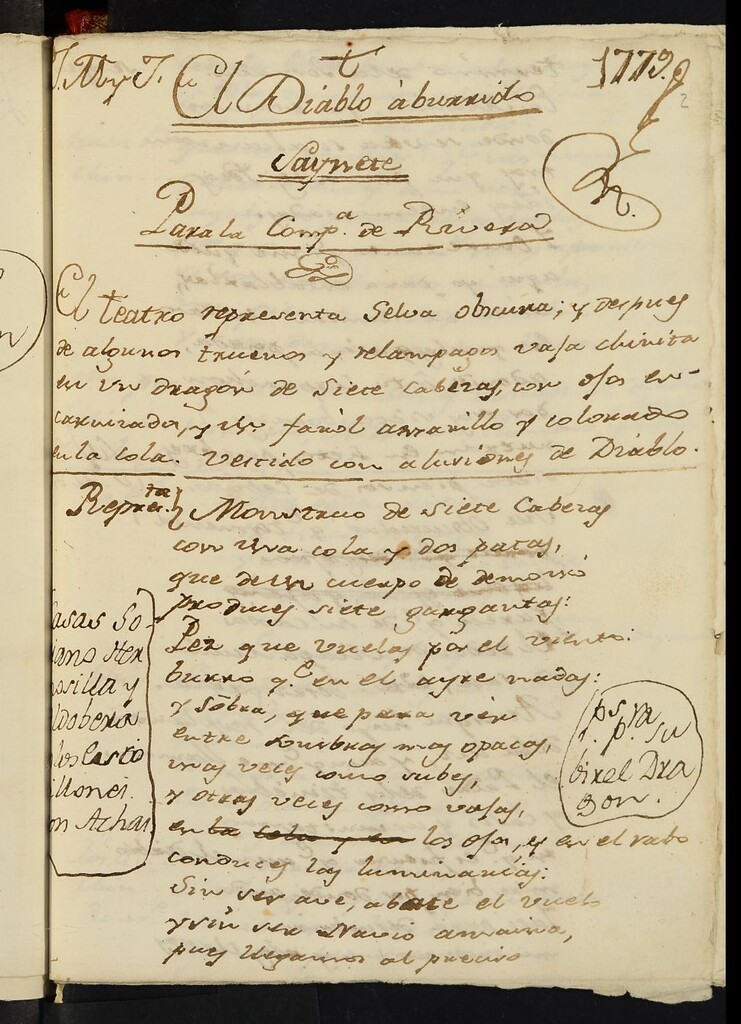 J. M y J. † 1773.
El Diablo aburrido
2
Saynete
Para la Comp.a de Rivera
El teatro representa Selva obscura; y despues
de algunos truenos y relampagos vaja chinita
en vn dragón de Siete Cabezas, con ojos en-
carnizados, y vn faról amarillo y colorado
en la cola. Vestido con alusiones de Diablo.
Represta. } Monstruo de Siete Cabezas
con vna cola y dos patas,
que de vn cuerpo de demonio
produces siete gargantas:
Pez que vuelas por el viento:
burro q.e en el ayre nadas:
y sombra, que para ver
entre sombras mas opacas,
vnas veces como subes,
y otras veces como vajas,
en la cola y en los ojos, y en el rabo
conduces las luminarias:
Sin ser ave, abate el vuelo
y sin ser Navio amaina,
pues llegamos al preciso
asas So-
ano Her
osilla y
ldobera
los Casto
illones.
on Achas
p.a su
bir el Dra
gon.